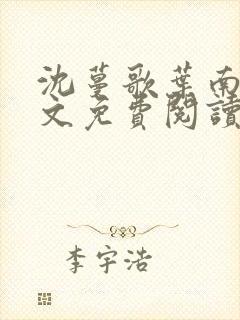 沈蔓歌葉南
文免費閱讀
李宇浩